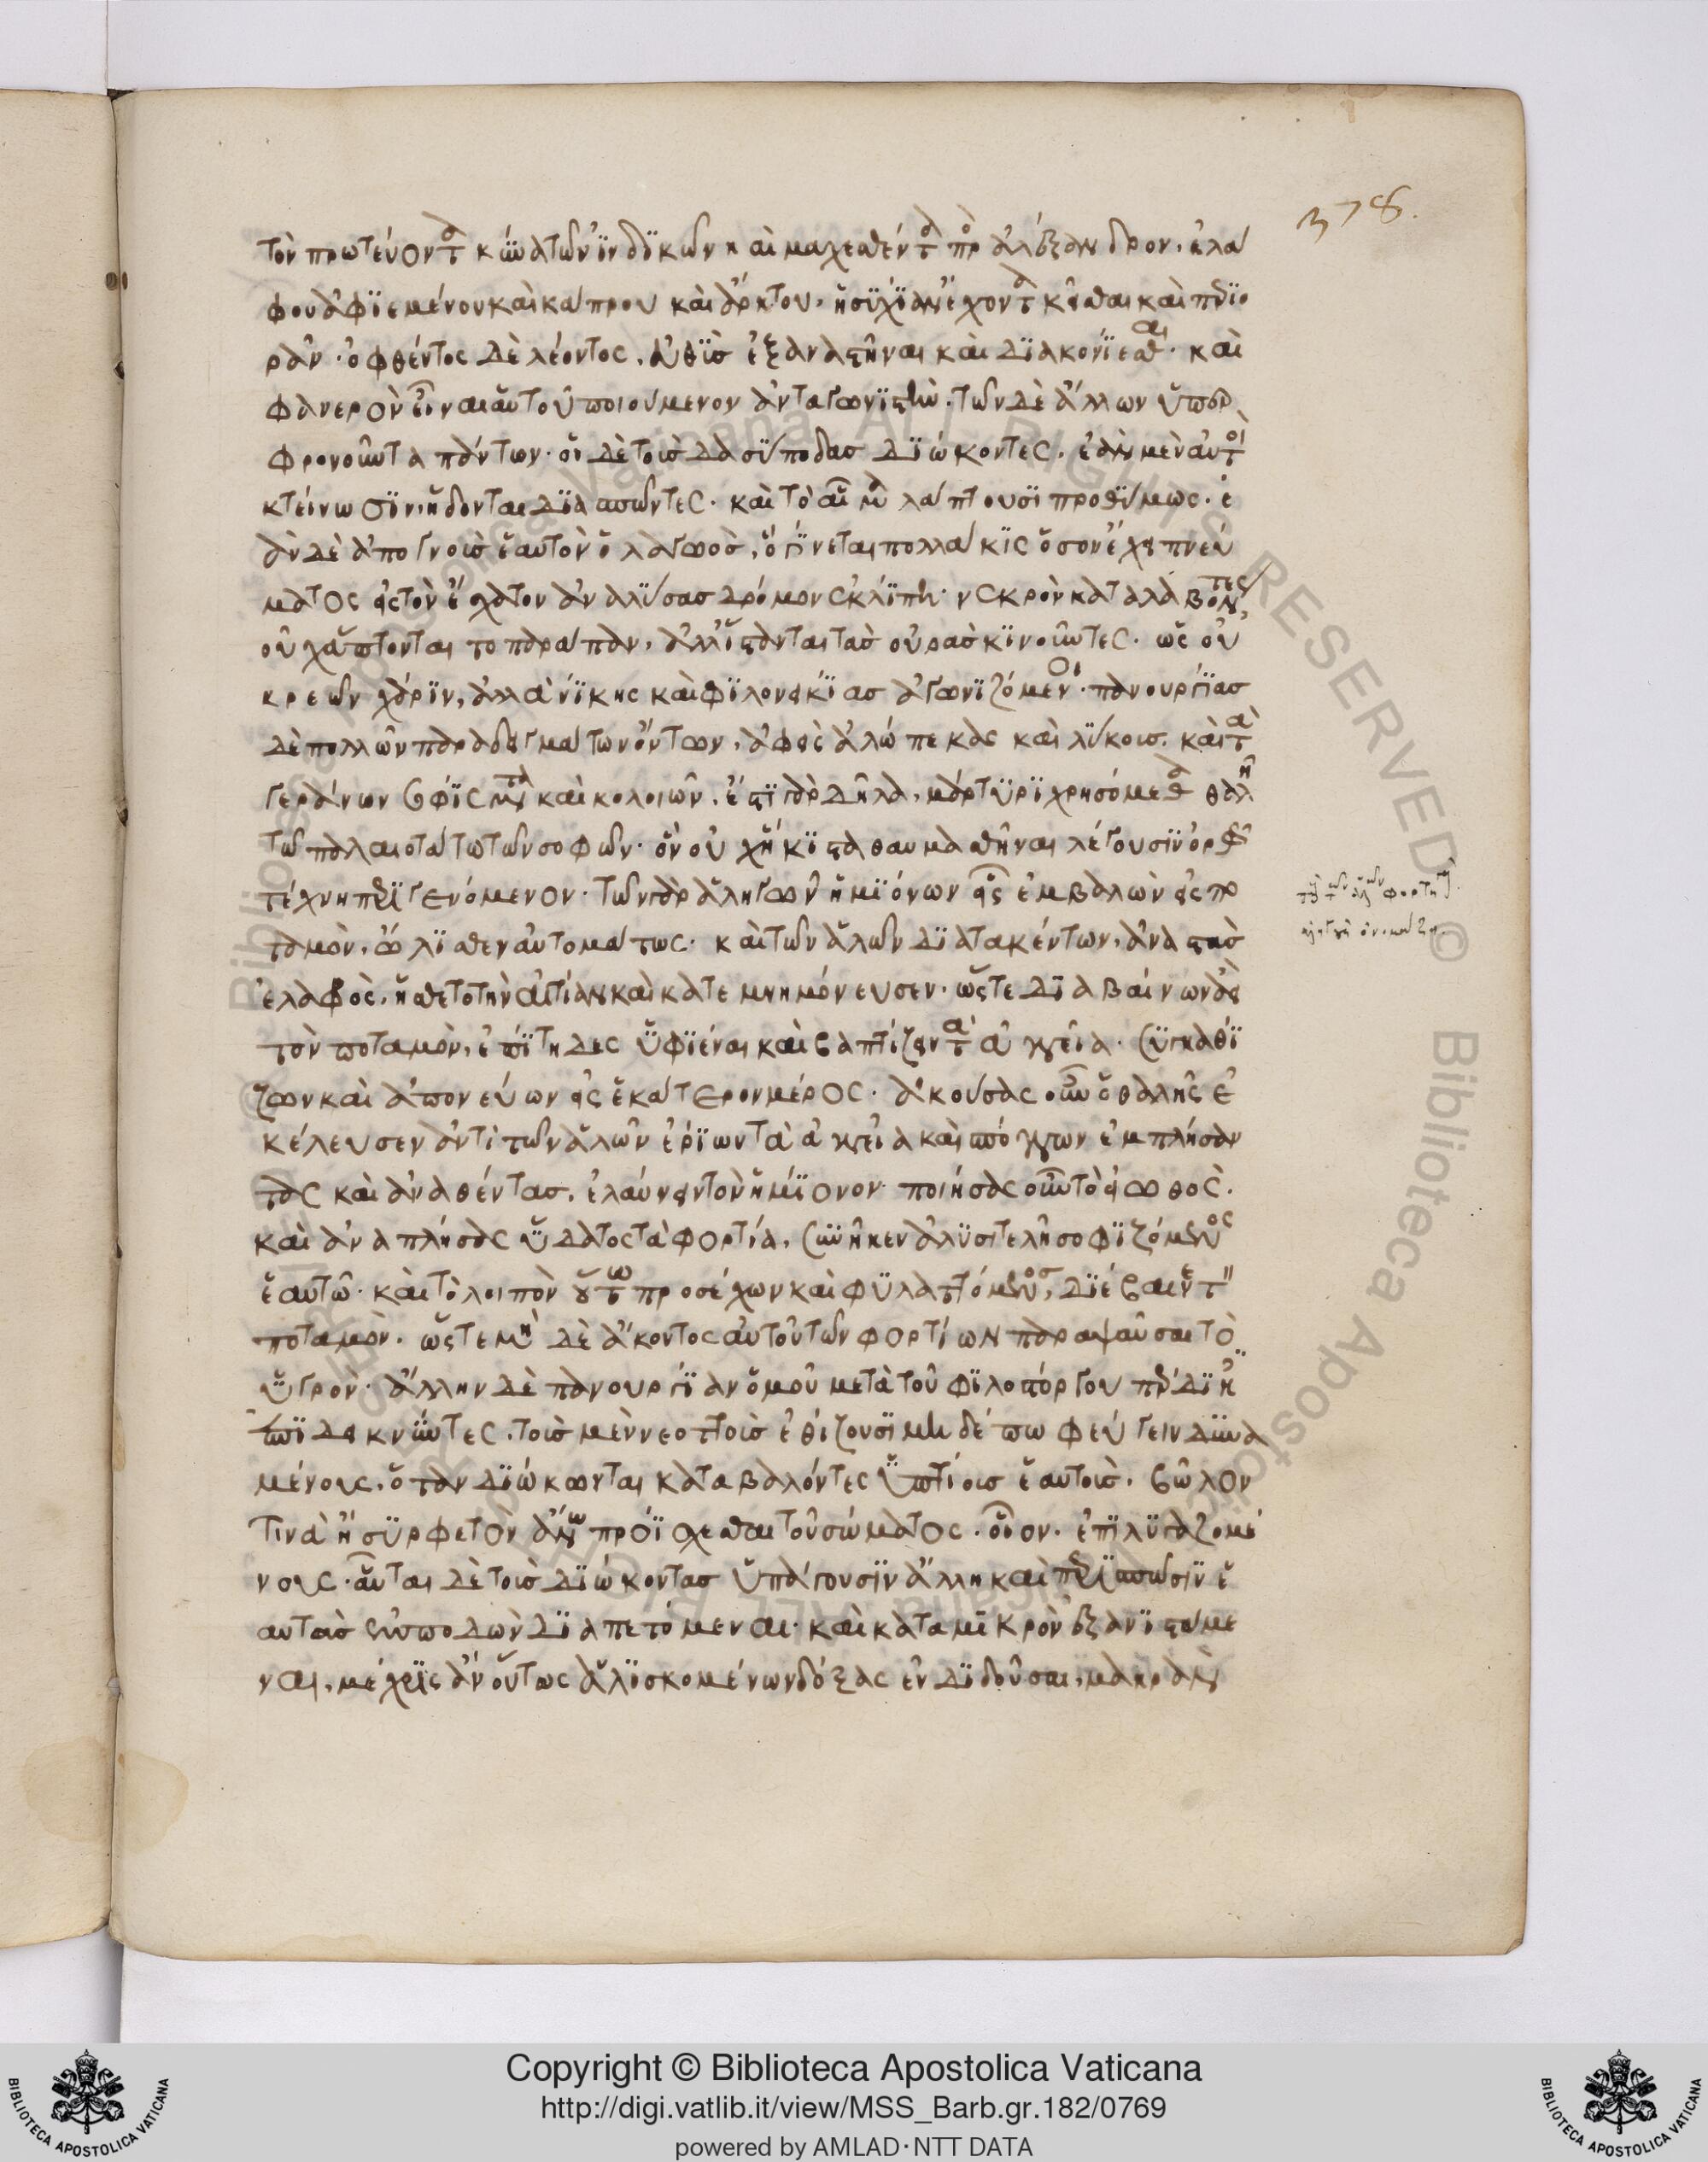 378.
τὸν πρωτεύοντα κυνῶν τῶν ἰνδικῶν καὶ μαχεσθέντα πρὸς ἀλέξανδρον, ἐλά
φου ἀφϊεμένου καὶ κάπρου καὶ ἄρκτου, ἡσυχίαν ἔχοντα κεῖσθαι καὶ περιο
ρᾶν· ὀφθέντος δὲ λέοντος, εὐθὺς ἐξαναστῆναι καὶ διακονίεσθαι· καὶ
φανερὸν εἶναι αὑτοῦ ποιούμενον ἀνταγωνιστὴν· τῶν δὲ ἄλλων ὑπερ
φρονοῦντα πάντων· οἱ δὲ τοὺς δασύποδας διώκοντες, ἐὰν μὲν αὐτοὶ
κτείνωσιν, ἥδονται διασπῶντες· καὶ τὸ αἷμα λάπτουσι προθύμως· ἐ
ὰν δὲ ἀπογνοὺς ἑαυτὸν ὁ λαγωὸς, ὃ γίνεται πολλάκις ὅσον ἔχει πνεύ
ματος εἰς τὸν ἔσχατον ἀναλύσας δρόμον ἐκλίπῃ· νεκρὸν καταλαβόντες,
οὐχ ἅπτονται τοπαράπαν, ἀλλ' ἵστανται τὰς οὐρὰς κινοῦντες· ὡς οὐ
κρεῶν χάριν, ἀλλὰ νίκης καὶ φιλονεικίας ἀγωνιζόμενοι· πανουργίας
δὲ πολλῶν παραδειγμάτων ὄντων, ἀφεὶς ἀλώπεκας καὶ λύκους, καὶ τὰ
γεράνων σοφίσματα καὶ κολοιῶν, ἔστι γὰρ δῆλα, μάρτυρι χρησόμεθα θαλῆ
τῶ παλαιοτάτω τῶν σοφῶν· ὃν οὐχ ἥκιστα θαυμασθῆναι λέγουσιν ὀρέως
τέχνη περιγενόμενον· τῶν γὰρ ἁληγῶν ἡμιόνων εἷς ἐμβαλὼν εἰς πο
ταμὸν, ὤλισθεν αὐτομάτως· καὶ τῶν ἁλῶν διατακέντων, ἀναστὰς
ἐλαφρὸς, ἤσθετο τὴν αἰτίαν καὶ κατεμνημόνευσεν· ὥστε διαβαίνων ἀεὶ
τὸν ποταμὸν, ἐπίτηδες ὑφιέναι καὶ βαπτίζειν τὰ ἀγγεῖα· συγκαθί
ζων καὶ ἀπονεύων εἰς ἑκάτερον μέρος· ἀκούσας οὖν ὁ θαλῆς ἐ
κέλευσεν ἀντὶ τῶν ἁλῶν ἐρίων τὰ ἀγγεῖα καὶ σπόγγων ἐμπλήσαν
τας καὶ ἀναθέντας, ἐλαύνειν τὸν ἡμίονον· ποιήσας οὖν τὸ εἰωθὸς.
καὶ ἀναπλήσας ὕδατος τὰ φορτία, συνῆκεν ἀλυσιτελῆ σοφιζόμενος
ἑαυτῶ· καὶ τὸ λοιπὸν οὕτω προσέχων καὶ φυλαττόμενος, διέβαινε τ"
ποταμὸν· ὥστε μηδὲ ἄκοντος αὐτοῦ τῶν φορτίων παραψαῦσαι τὸ
ὑγρὸν· ἄλλην δὲ πανουργίαν ὁμοῦ μετὰ τοῦ φιλοστόργου πέρδικες
ἐπιδεικνύντες, τοὺς μὲν νεοττοὺς ἐθίζουσι μηδέπω φεύγειν δυνα
μένους, ὅταν διώκωνται καταβαλόντες ὑπτίους ἑαυτοὺς, βῶλον
τινὰ ἢ συρφετὸν ἄνω προΐσχεσθαι τοῦ σώματος· οἷον, ἐπιλυγαζομέ
νους· αὗται δὲ τοὺς διώκοντας ὑπάγουσιν ἄλλη καὶ περισπῶσιν ἑ
αυτὰς ἐμποδὼν διαπετόμεναι· καὶ κατὰ μικρὸν ἐξανιστάμε
ναι, μέχρις ἂν οὕτως ἁλισκομένων δόξας ἐνδιδοῦσαι, μακρὰν